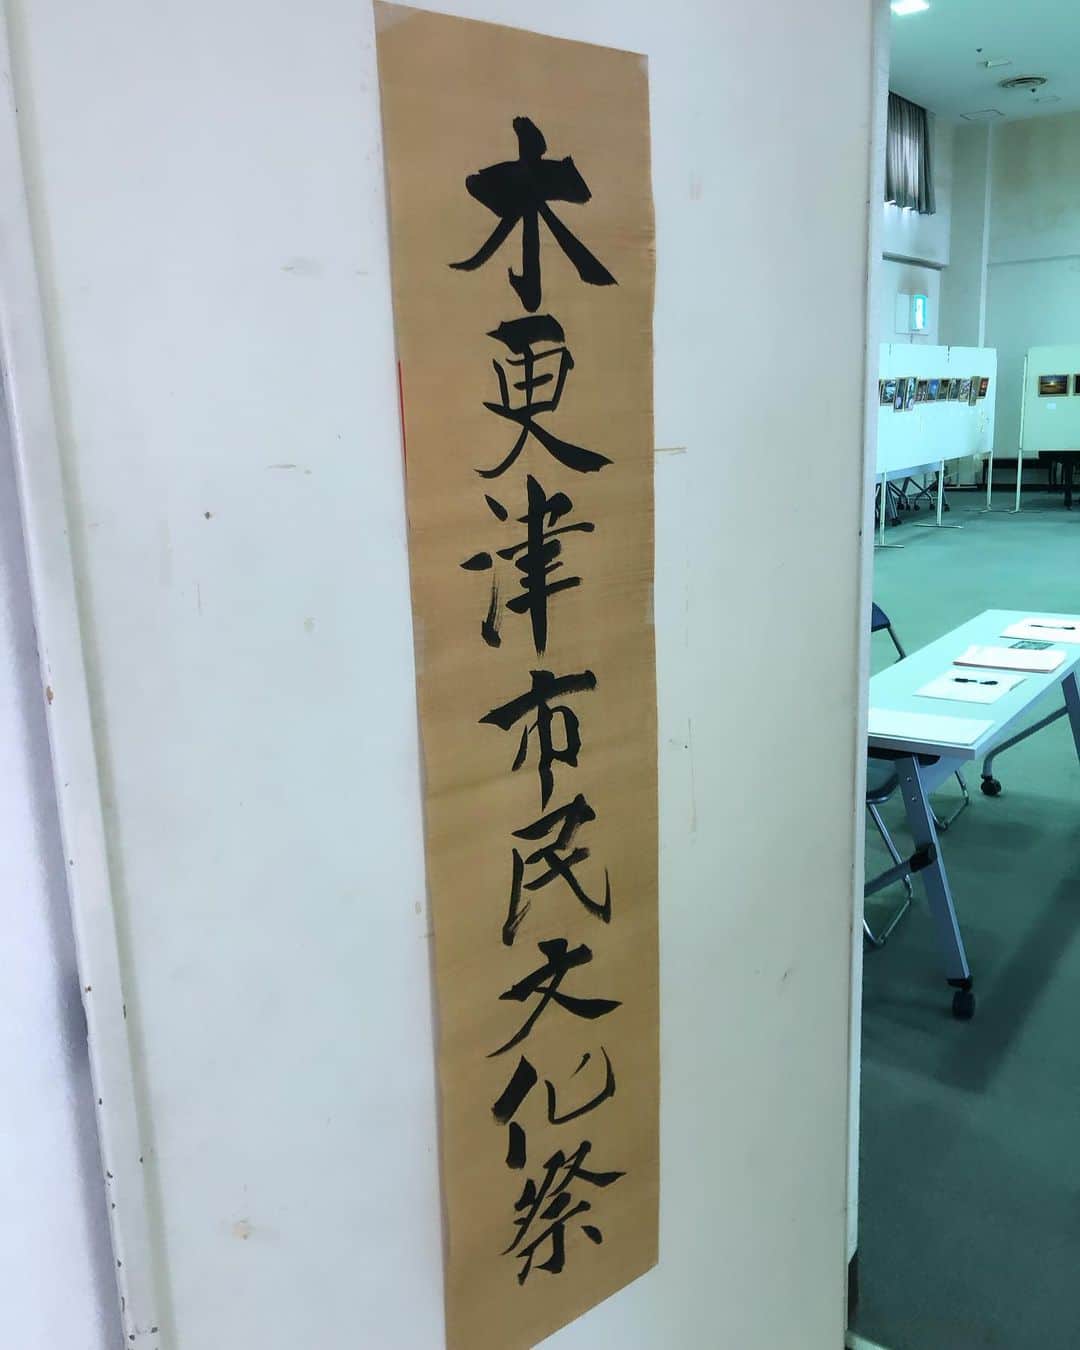 木更津市民文化祭